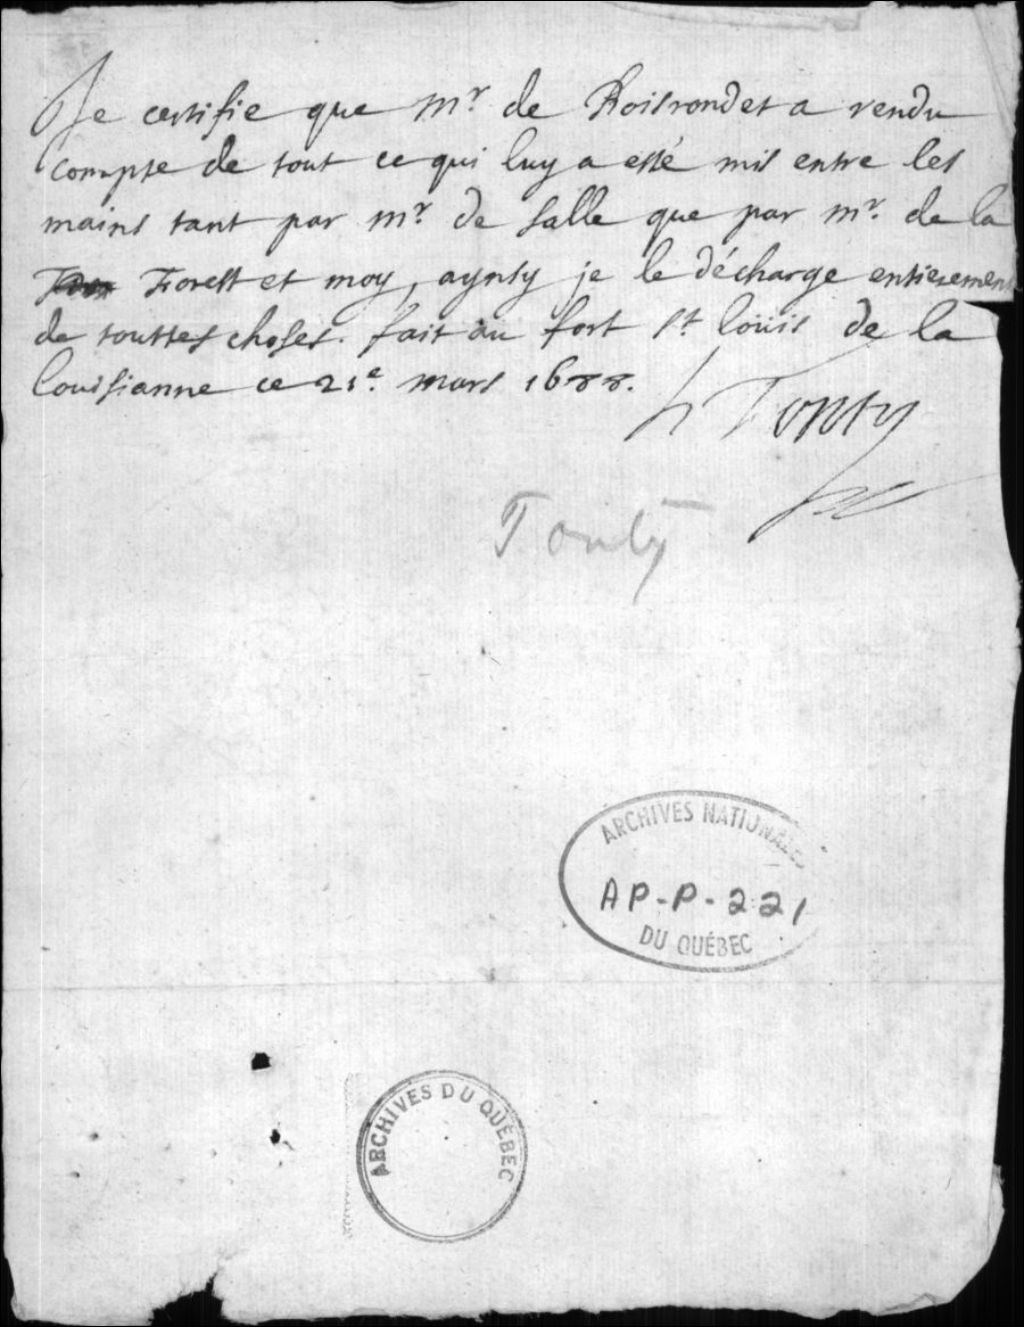 Je certifie que Mr de Boisrondet a rendu
compte de tout ce qui luy a esté mis entre les
mains tant par mr. de salle que par mr. de la
Forest et moy, aynsy je le décharge entierement
de touttes choses. fait au fort st. loüis de la
louisianne ce 21e. mars 1688.
h Tonty
Tonty
ARCHIVES NATIONALES
AP-P-221
DU QUÉBEC
ARCHIVES DU QUÉBEC